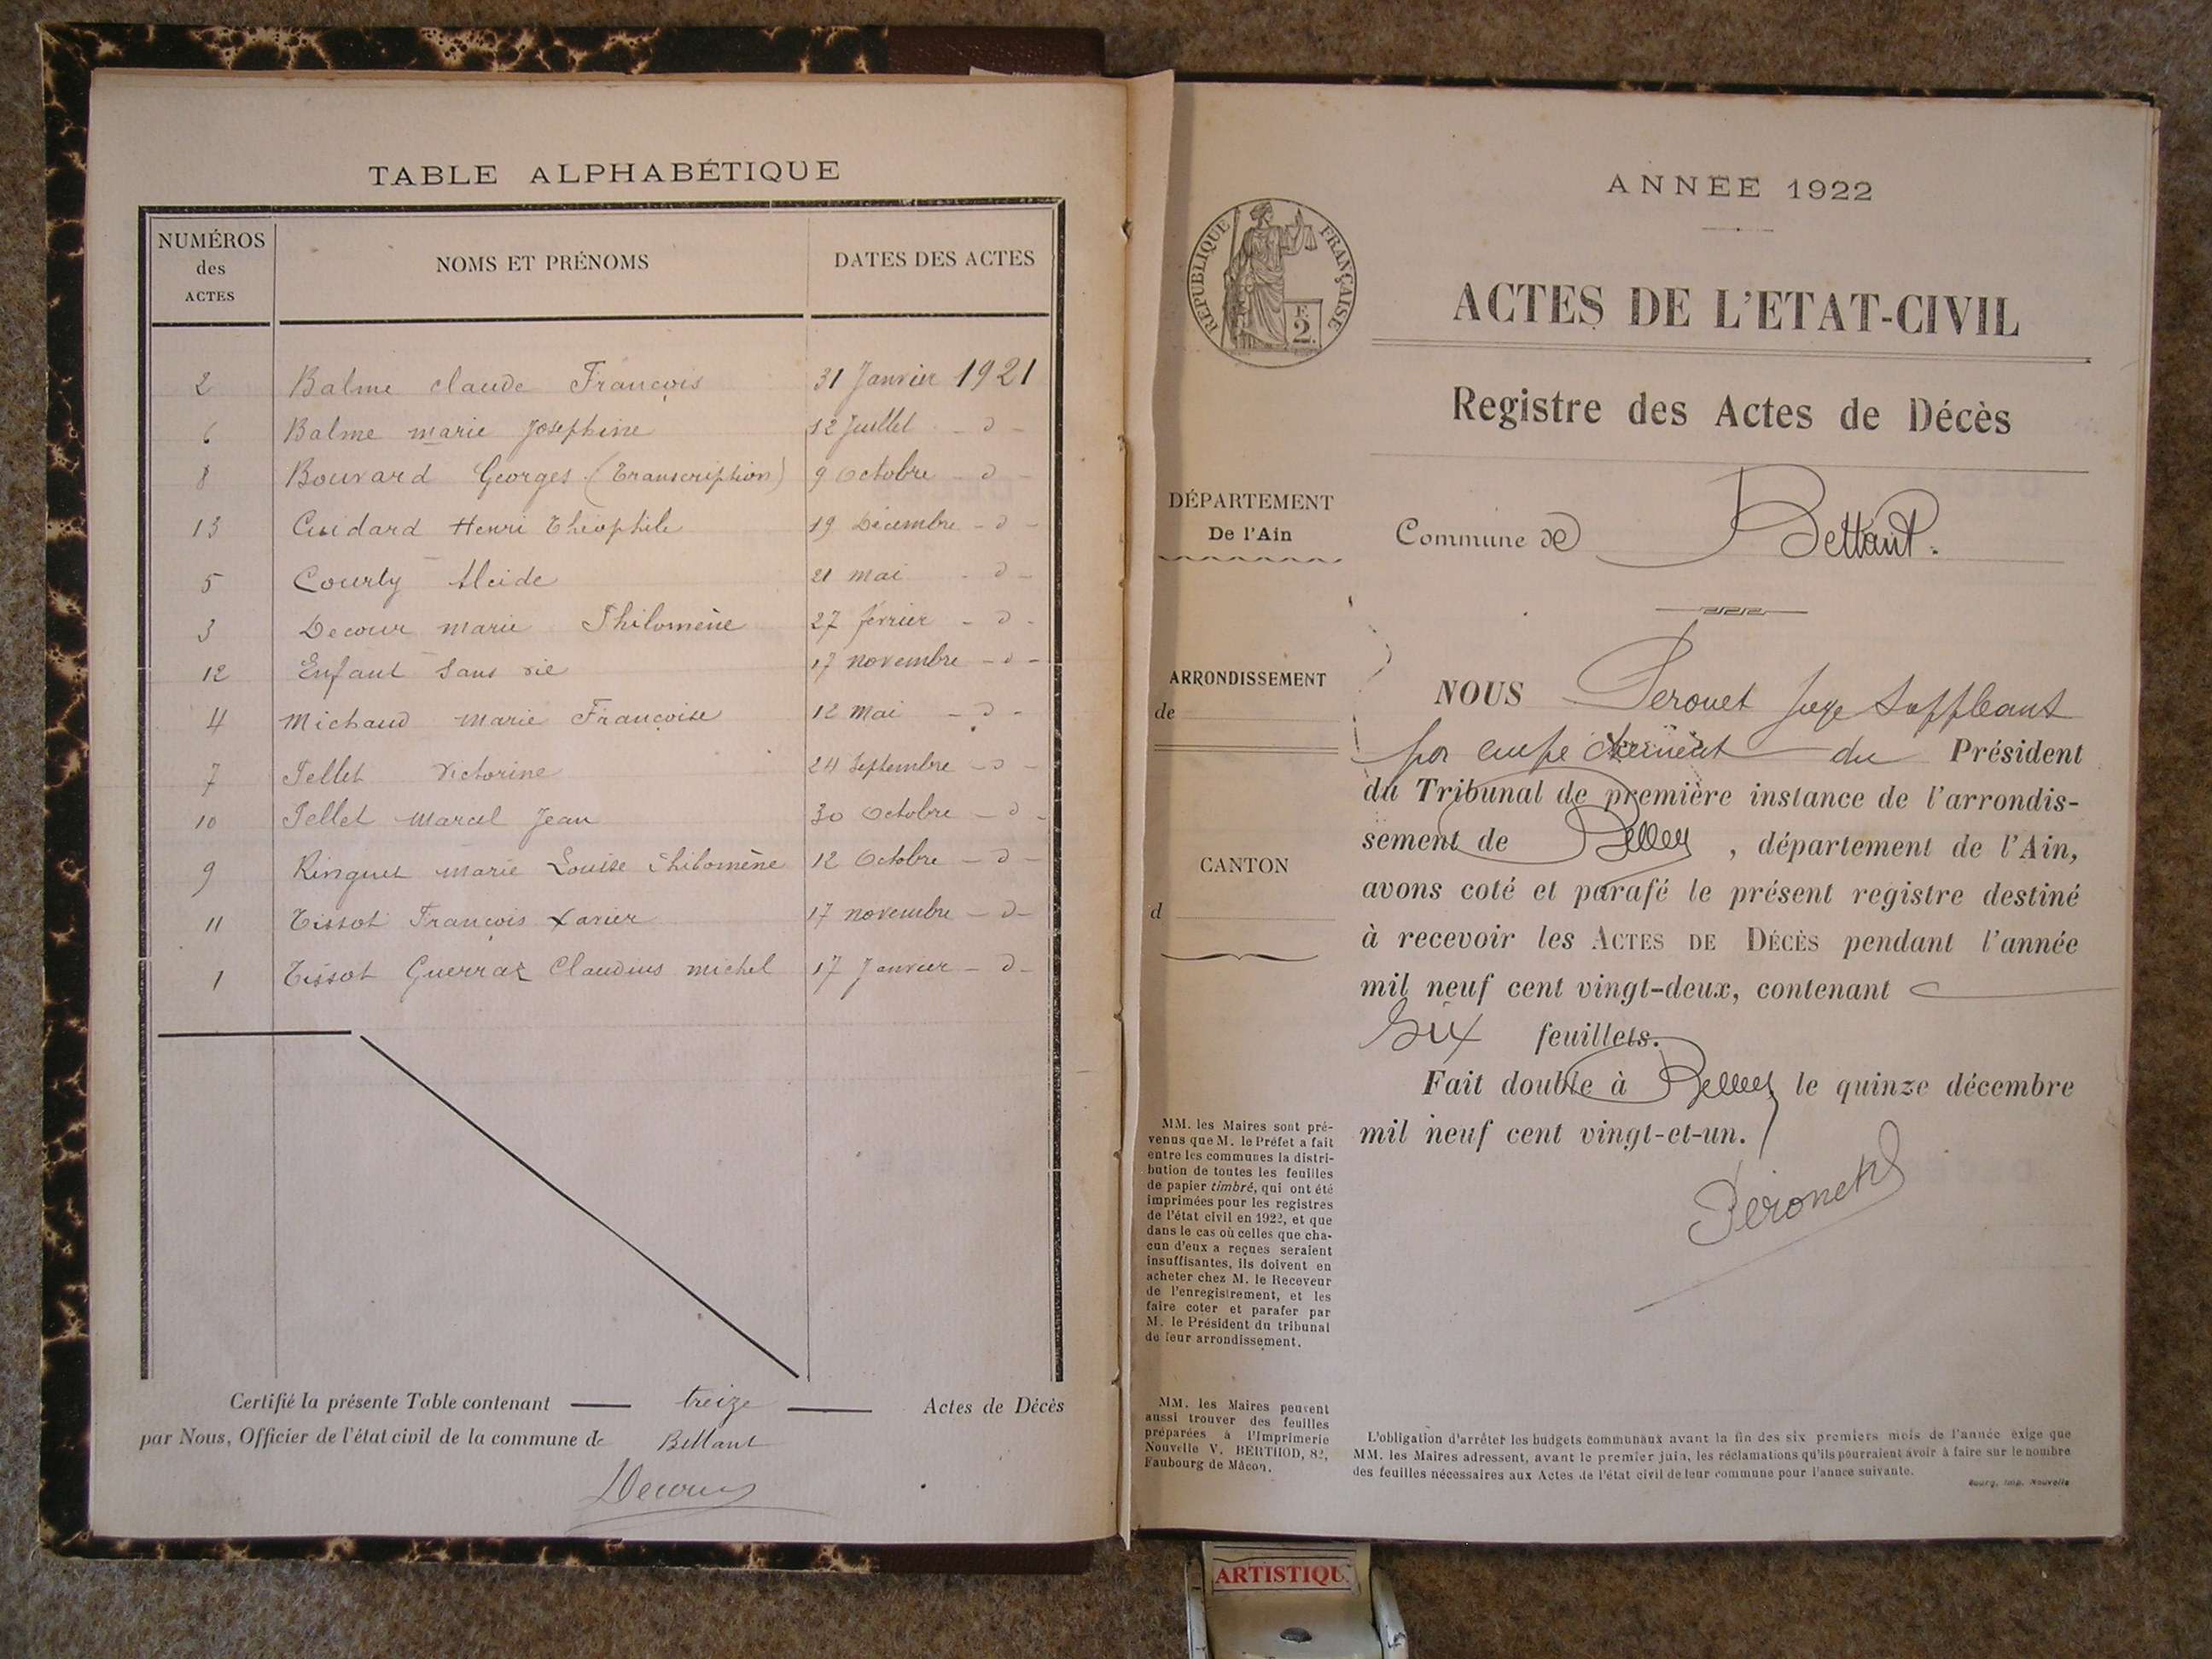 TABLE ALPHABÉTIQUE
NUMÉROS des ACTES NOMS ET PRÉNOMS DATES DES ACTES
2 Balme claude François 31 Janvier 1921
6 Balme marie Josephine 12 Juillet - d -
8 Bouvard Georges (Transcription) 9 Octobre - d -
13 Cuidard Henri Théophile 19 Décembre - d -
5 Courly Alcide 21 mai - d -
3 Decour marie Philomène 27 février - d -
12 Enfant sans vie 17 novembre - d -
4 Michaud marie Françoise 12 Mai - d -
7 Pellet Victorine 24 Septembre - d -
10 Pellet Marcel Jean 30 Octobre - d -
9 Ringuet Marie Louise Philomène 12 Octobre - d -
11 Tissot François Xavier 17 novembre - d -
1 Tissot Guerraz Claudius michel 17 Janvier - d -
Certifié la présente Table contenant treize Actes de Décès
par Nous, Officier de l'état civil de la commune de Bettant
Decour
ANNÉE 1922
RÉPUBLIQUE FRANÇAISE
F. 2.
ACTES DE L'ETAT-CIVIL
Registre des Actes de Décès
DÉPARTEMENT
De l'Ain
Commune de Bettant.
ARRONDISSEMENT
de
CANTON
d
NOUS Peronet Juge Suppléant
par empêchement du Président
du Tribunal de première instance de l'arrondis-
sement de Belley, département de l'Ain,
avons coté et parafé le présent registre destiné
à recevoir les ACTES DE DÉCÈS pendant l'année
mil neuf cent vingt-deux, contenant
Six feuillets.
Fait double à Belley le quinze décembre
mil neuf cent vingt-et-un.
Péronet
MM. les Maires sont pré-
venus que M. le Préfet a fait
entre les communes la distri-
bution de toutes les feuilles
de papier timbré, qui ont été
imprimées pour les registres
de l'état civil en 1922, et que
dans le cas où celles que cha-
cun d'eux a reçues seraient
insuffisantes, ils doivent en
acheter chez M. le Receveur
de l'enregistrement, et les
faire coter et parafer par
M. le Président du tribunal
de leur arrondissement.
MM. les Maires peuvent
aussi trouver des feuilles
préparées à l'Imprimerie
Nouvelle V. BERTHOD, 82,
Faubourg de Mâcon.
L'obligation d'arrêter les budgets communaux avant la fin des six premiers mois de l'année exige que
MM. les Maires adressent, avant le premier juin, les réclamations qu'ils pourraient avoir à faire sur le nombre
des feuilles nécessaires aux Actes de l'état civil de leur commune pour l'année suivante.
Bourg, Imp. Nouvelle
ARTISTIQU